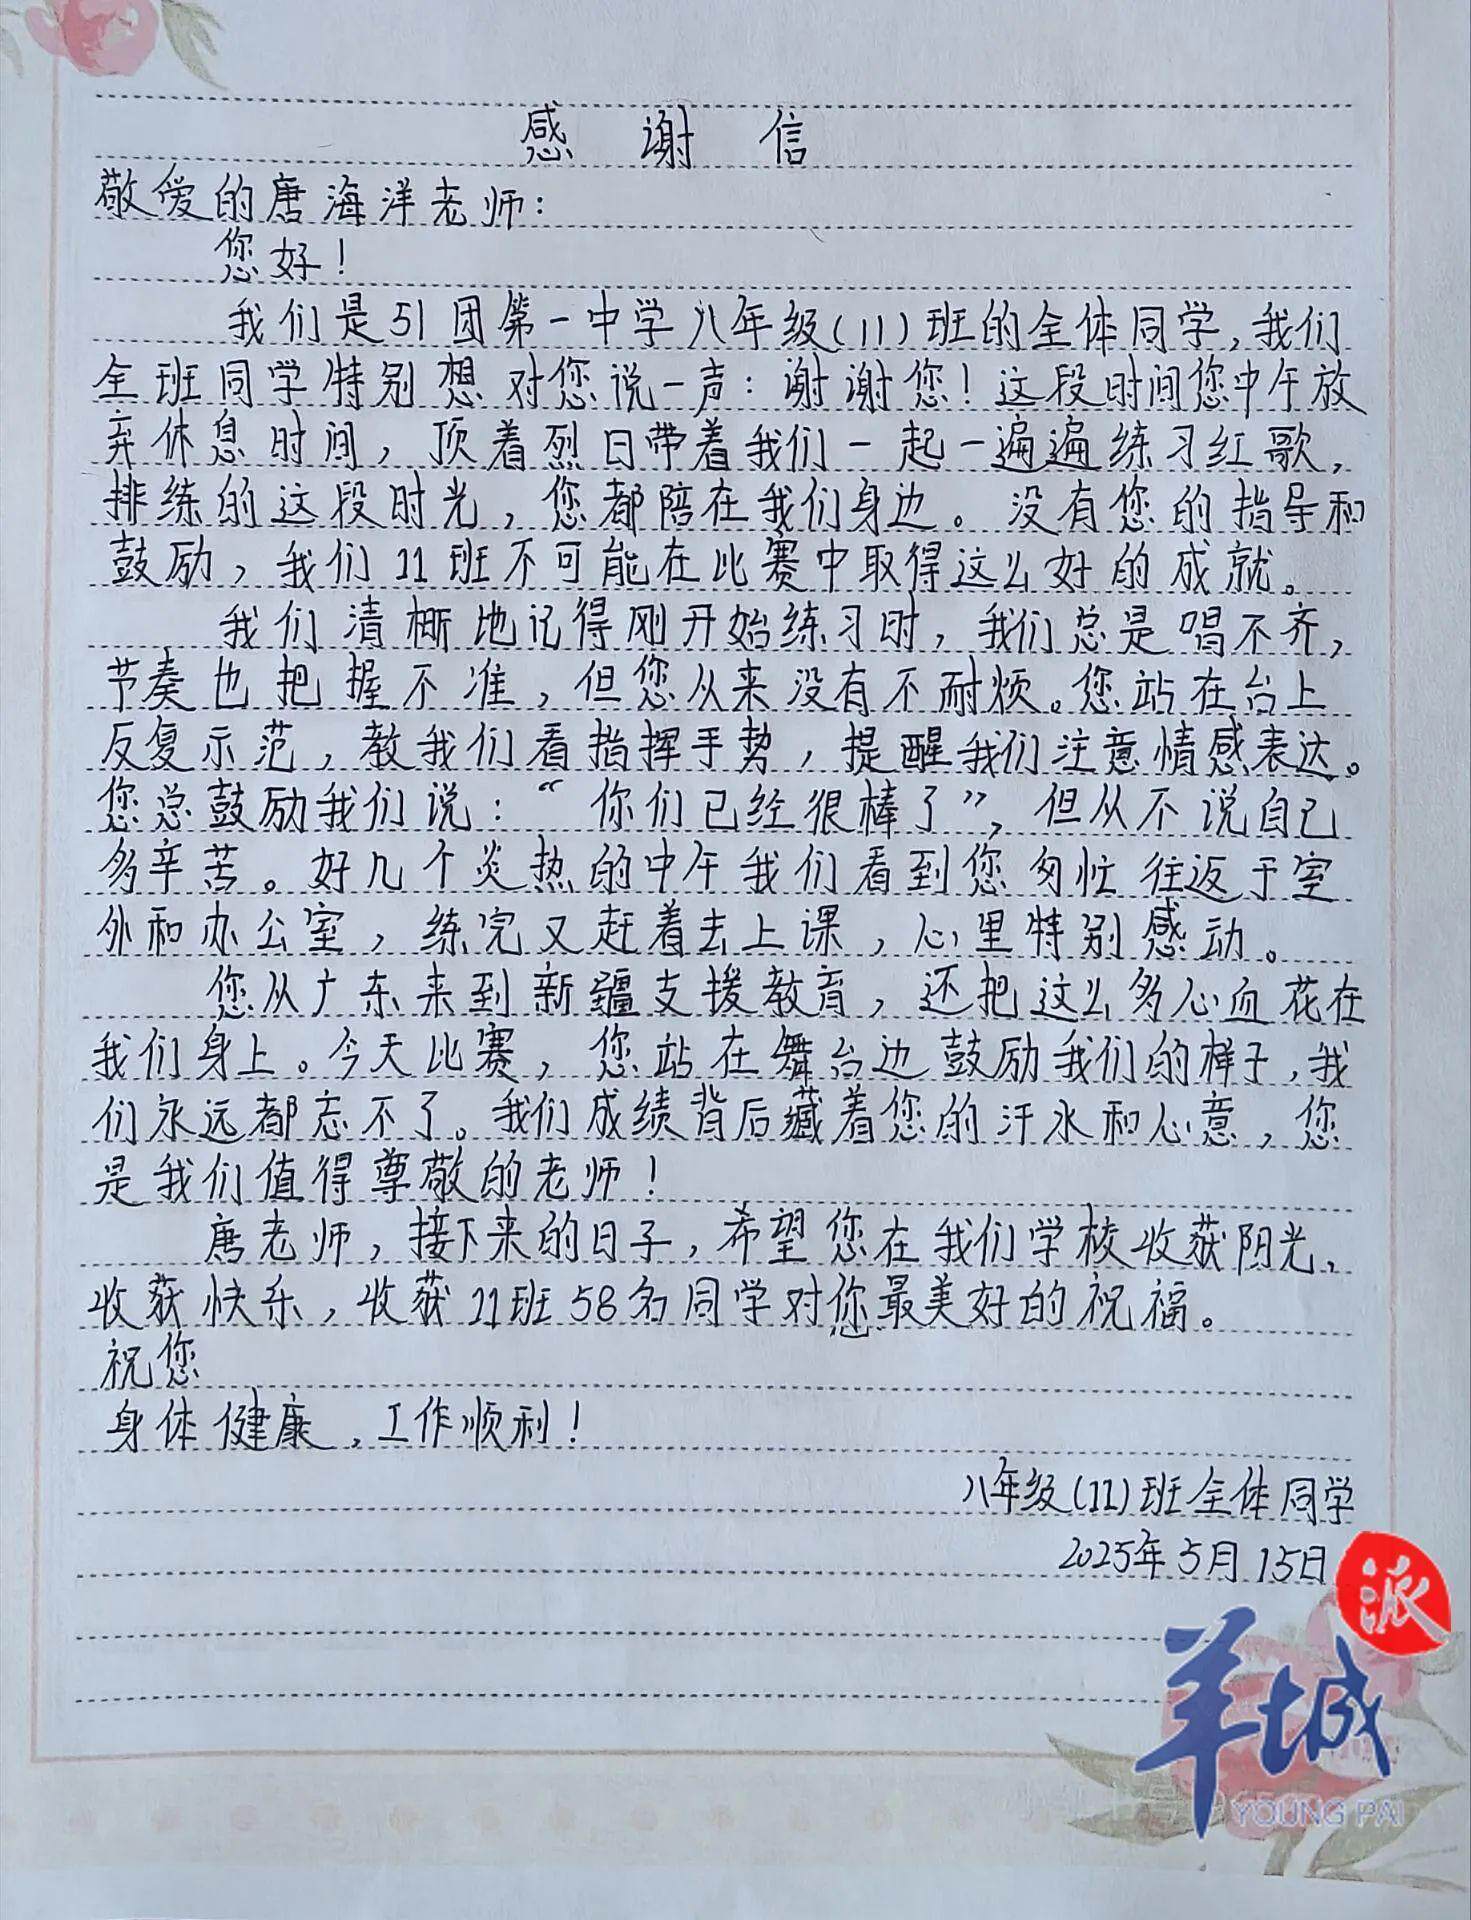 感谢信
敬爱的唐海洋老师：
您好！
我们是51团第一中学八年级(11)班的全体同学,我们
全班同学特别想对您说一声：谢谢您！这段时间您中午放
弃休息时间，顶着烈日带着我们一起一遍遍练习红歌，
排练的这段时光，您都陪在我们身边。没有您的指导和
鼓励，我们11班不可能在比赛中取得这么好的成就。
我们清晰地记得刚开始练习时，我们总是唱不齐，
节奏也把握不准，但您从来没有不耐烦。您站在台上
反复示范，教我们看指挥手势，提醒我们注意情感表达。
您总鼓励我们说：“你们已经很棒了”，但从不说自己
多辛苦。好几个炎热的中午我们看到您匆忙往返于室
外和办公室，练完又赶着去上课，心里特别感动。
您从广东来到新疆支援教育，还把这么多心血花在
我们身上。今天比赛，您站在舞台边鼓励我们的样子，我
们永远都忘不了。我们成绩背后藏着您的汗水和心意，您
是我们值得尊敬的老师！
唐老师，接下来的日子，希望您在我们学校收获阳光，
收获快乐，收获11班58名同学对您最美好的祝福。
祝您
身体健康，工作顺利！
八年级(11)班全体同学
2025年5月15日
派
羊城
YOUNG PAI